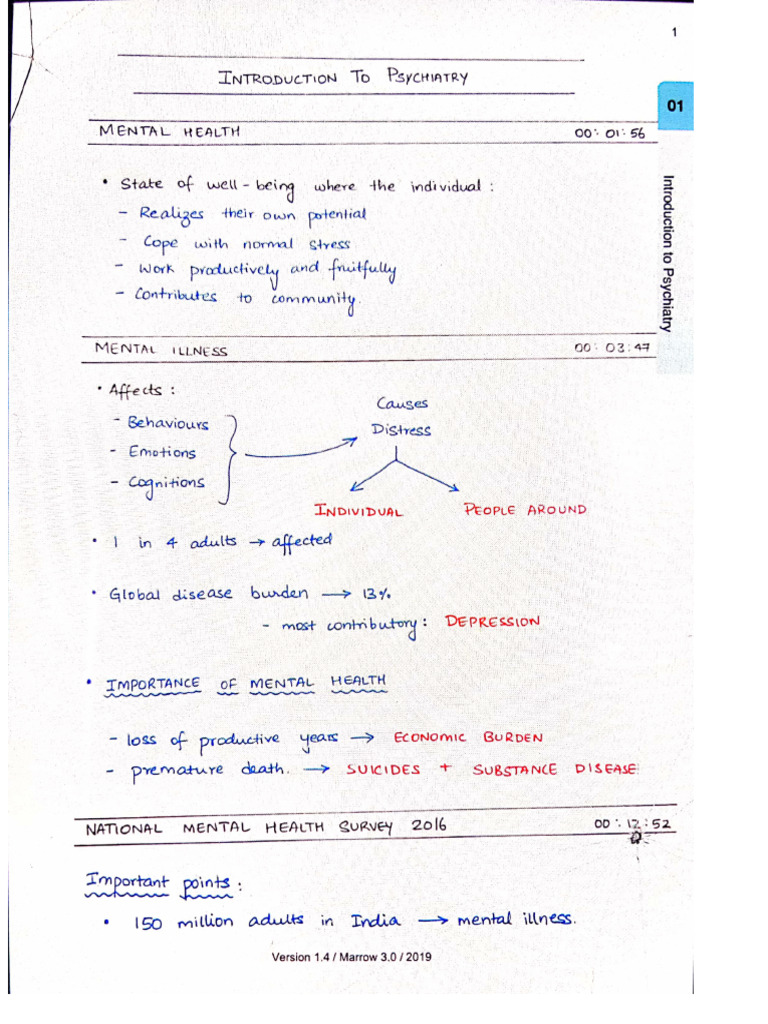 1
INTRODUCTION TO PSYCHIATRY
01
Introduction to Psychiatry
MENTAL HEALTH 00:01:56
• State of well-being where the individual :
- Realizes their own potential
- Cope with normal stress
- Work productively and fruitfully
- Contributes to community.
MENTAL ILLNESS 00:03:47
• Affects :
- Behaviours
- Emotions
- Cognitions
Causes
Distress
INDIVIDUAL PEOPLE AROUND
• 1 in 4 adults → affected
• Global disease burden → 13%
- most contributory : DEPRESSION
• IMPORTANCE OF MENTAL HEALTH
- loss of productive years → ECONOMIC BURDEN
- premature death. → SUICIDES + SUBSTANCE DISEASE
NATIONAL MENTAL HEALTH SURVEY 2016 00:12:52
Important points :
• 150 million adults in India → mental illness.
Version 1.4 / Marrow 3.0 / 2019